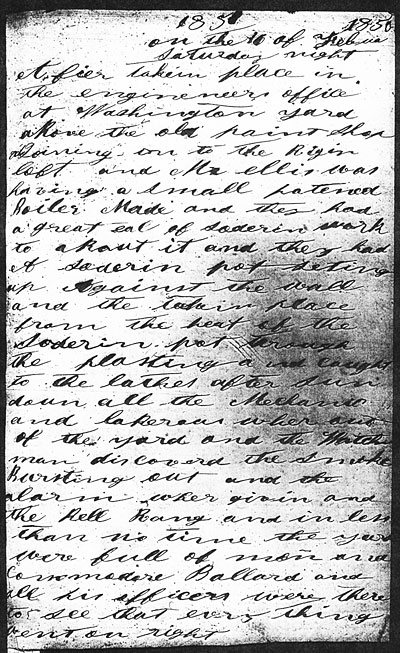 185 1850
on the 16 of Febru
Saturday night
A fier takein place in
the engineers office
at Washington yard
above the old paint Shop
ajoining on to the Rigin
loft and Mr ellis was
having a small patened
Boiler Made and they had
a great eal of soderin work
to about it and they had
A Soderin pot seting
up Against the wall
and the takin place
from the heat of the
Soderin pot through
the plasting and caught
to the lathes after Sun
down all the Mechanic
and lakerous wher out
of the yard and the Watch
man discoverd the Smoke
Bursting out and the
alarm wher givin and
the Bell Rang and in less
than no time the yard
were full of men and
Commodore Ballard and
all his officers were there
to see that every thing
went on right